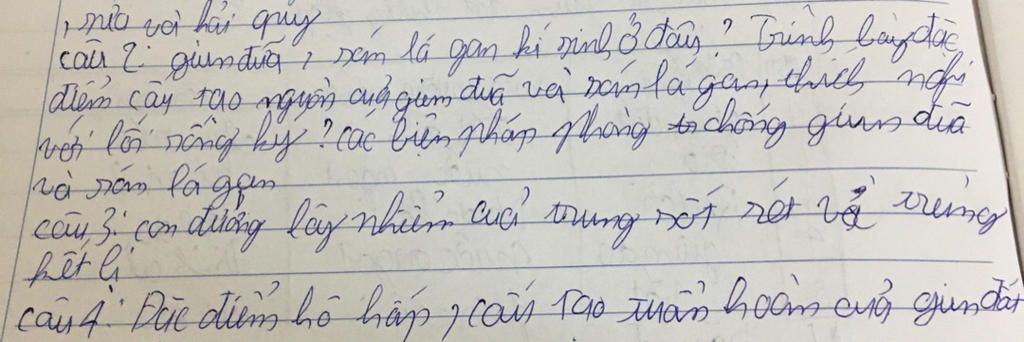 , sứa và hải quỳ
câu 2: giun đũa, sán lá gan kí sinh ở đâu? Trình bày đặc
điểm cấu tạo ngoài của giun đũa và sán lá gan thích nghi
với lối sống ký? các biện pháp phòng chống giun đũa
và sán lá gan
câu 3: con đường lây nhiễm của trùng sốt rét và trùng
kết lị
câu 4: Đặc điểm hô hấp, cấu tạo tuần hoàn của giun đất